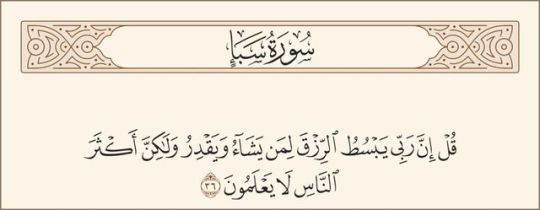 سُورَةُ سَبَإٍ
قُلۡ إِنَّ رَبِّي يَبۡسُطُ ٱلرِّزۡقَ لِمَن يَشَآءُ وَيَقۡدِرُ وَلَٰكِنَّ أَكۡثَرَ
ٱلنَّاسِ لَا يَعۡلَمُونَ ٣٦